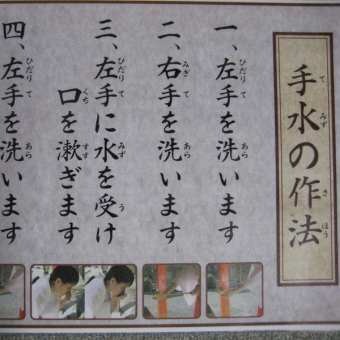 手水の作法
一、左手を洗います
二、右手を洗います
三、左手に水を受け
口を漱ぎます
四、左手を洗います